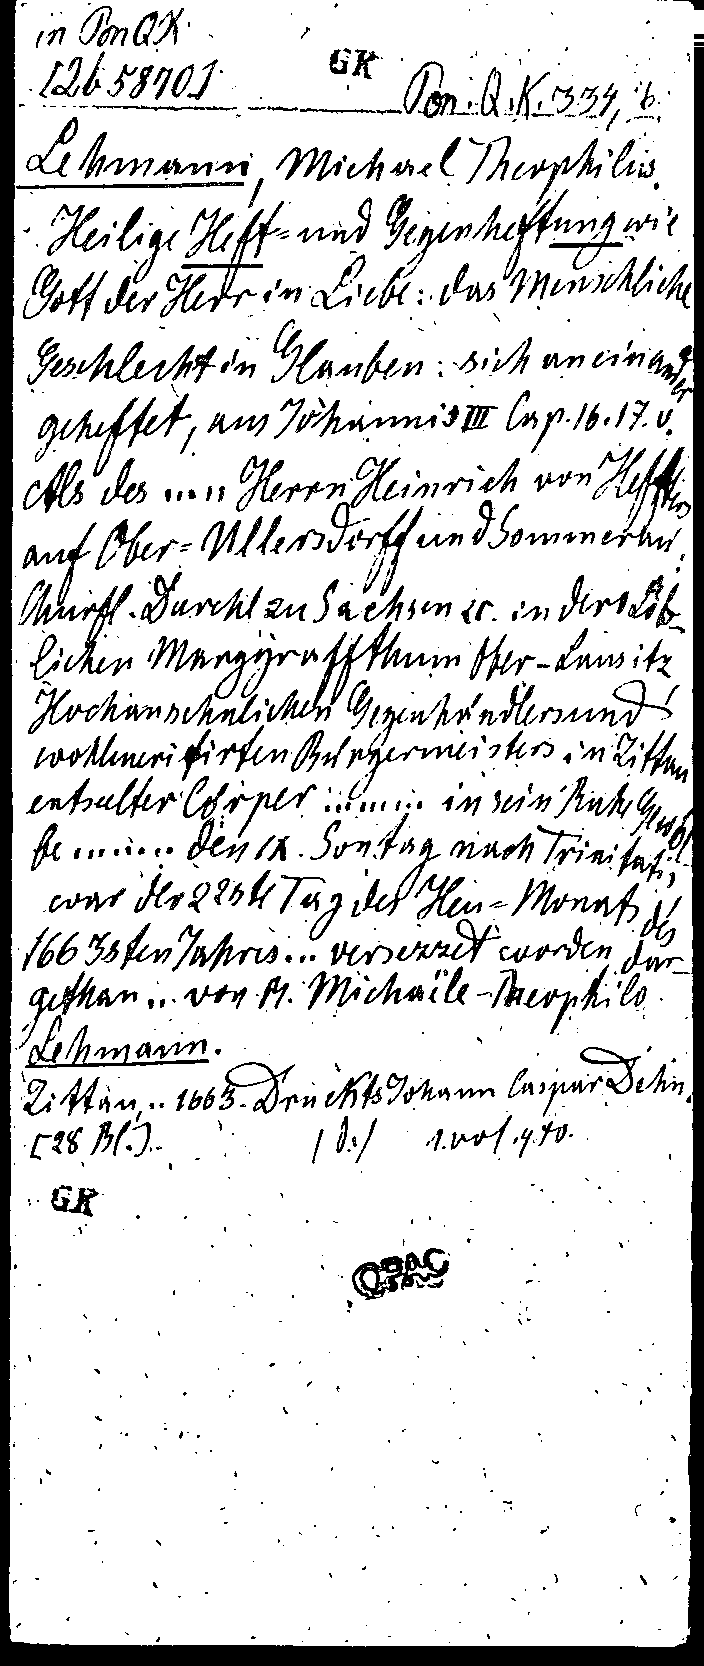 in Pon Q K
[2b 5870]
GK
Pon. Q. K. 334, 6.
Lehmann, Michael Theophilus.
Heilige Heft= und Gegenheftung wie
Gott der Herr in Liebe: das Menschliche
Geschlecht in Glauben: sich an einander
geheftet, aus Johannis III Cap. 16. 17. v.
Als des .... Herrn Heinrich von Heffters
auf Ober=Ullersdorff und Sommerau,
Churfl. Durchl zu Sachsen 2c. in dero Löb-
lichen Marggraffthum Ober-Lausitz
Hochansehnlichen Gegenhändlers und
wohlmeritirten Bürgermeisters in Zittau
entseelter Cörper ....... in sein Ruhe Gewöl-
be ...... den IX. Sontag nach Trinitatis,
war der 22ste Tag des Heu=Monats des
1663sten Jahres... versezzet worden, dar-
gethan .. von M. Michaële-Theophilo
Lehmann.
Zittau, .. 1663. Druckts Johann Caspar Dehn.
[28 Bl.] 1 vol. 4to.
GK